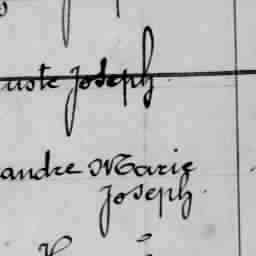 uste Joseph
andre Marie
Joseph.